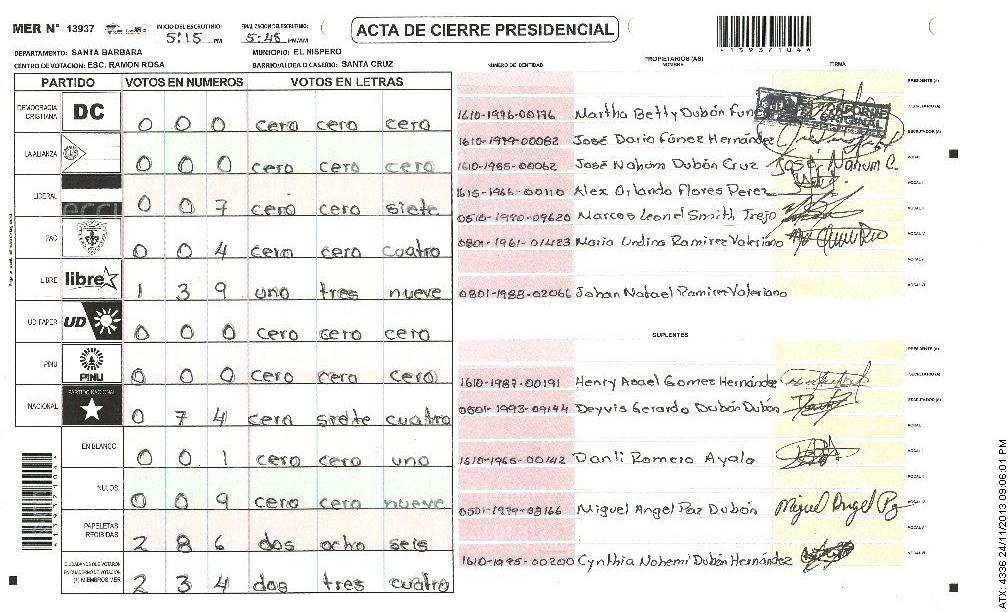 MER N° 13937 INICIO DEL ESCRUTINIO: 5:15 PM FINALIZACION DEL ESCRUTINIO: 5:45 PM/AM
ACTA DE CIERRE PRESIDENCIAL
DEPARTAMENTO: SANTA BARBARA MUNICIPIO: EL NISPERO
CENTRO DE VOTACION: ESC. RAMON ROSA BARRIO/ALDEA O CASERIO: SANTA CRUZ
PARTIDO VOTOS EN NUMEROS VOTOS EN LETRAS
DEMOCRACIA CRISTIANA DC 0 0 0 cero cero cero
LA ALIANZA 0 0 0 cero cero cero
LIBERAL 0 0 7 cero cero siete
PAC 0 0 4 cero cero cuatro
LIBRE libre 1 3 9 uno tres nueve
UD-FAPER UD 0 0 0 cero cero cero
PINU PINU 0 0 0 cero cero cero
NACIONAL PARTIDO NACIONAL 0 7 4 cero siete cuatro
EN BLANCO 0 0 1 cero cero uno
NULOS 0 0 9 cero cero nueve
PAPELETAS RECIBIDAS 2 8 6 dos ocho seis
CIUDADANOS QUE VOTARON EN CUADERNO DE VOTACION (+) MIEMBROS MER 2 3 4 dos tres cuatro
PROPIETARIOS (AS)
NUMERO DE IDENTIDAD NOMBRE FIRMA
PRESIDENTE (A)
1610-1996-00176 Martha Betty Dubón SECRETARIO (A)
1610-1979-00082 José Dario Fúnez Hernández ESCRUTADOR (A)
1610-1985-00062 José Nahúm Dubón Cruz José Nahum C. VOCAL I
1615-1966-00110 Alex Orlando Flores Perez
0510-1990-09620 Marcos Leonel Smith Trejo
0801-1961-01423 Maria Undina Ramirez Valeriano
0801-1988-02066 Johan Natael Ramirez Valeriano
SUPLENTES
PRESIDENTE (A)
1610-1987-00191 Henry Asael Gomez Hernández SECRETARIO (A)
0501-1993-09144 Deyvis Gerardo Dubón Dubón ESCRUTADOR (A)
1610-1965-00142 Danli Romero Ayala
Miguel Angel Paz Dubón Miguel Angel Pz
1610-1995-00200 Cynthia Nohemi Dubón Hernández
ATX: 4336 24/11/2013 09:06:01 PM